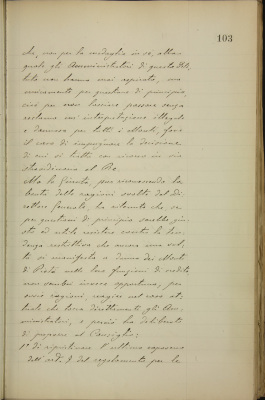 103
che, non per la medaglia in sè, alla
quale gli Amministratori di questo
non hanno mai aspirato, ma
unicamente per questione di principio,
cioè per non lasciare passare senza
reclamo un' interpretazione illegale
e dannosa per tutti i Monti, fare
il caso di impugnare la decisione
di cui si tratta con ricorso in via
straordinaria al Re.
Ma la Giunta, pur riconoscendo la
bontà delle ragioni svolte dal Di-
rettore Generale, ha ritenuto che se
per questioni di principio sarebbe giu-
sto ed utile resistere contro la ten-
denza restrittiva che ancora una vol-
ta si manifesta a danno dei Monti
di Pietà nelle loro funzioni di credito
non sarebbe invece opportuno, per
ovvie ragioni, reagire nel caso at-
tuale che tocca direttamente gli Am-
ministratori, e perciò ha deliberato
di proporre al Consiglio:
1° di ripristinare l'ultimo capoverso
dell'art. 9 del regolamento per la